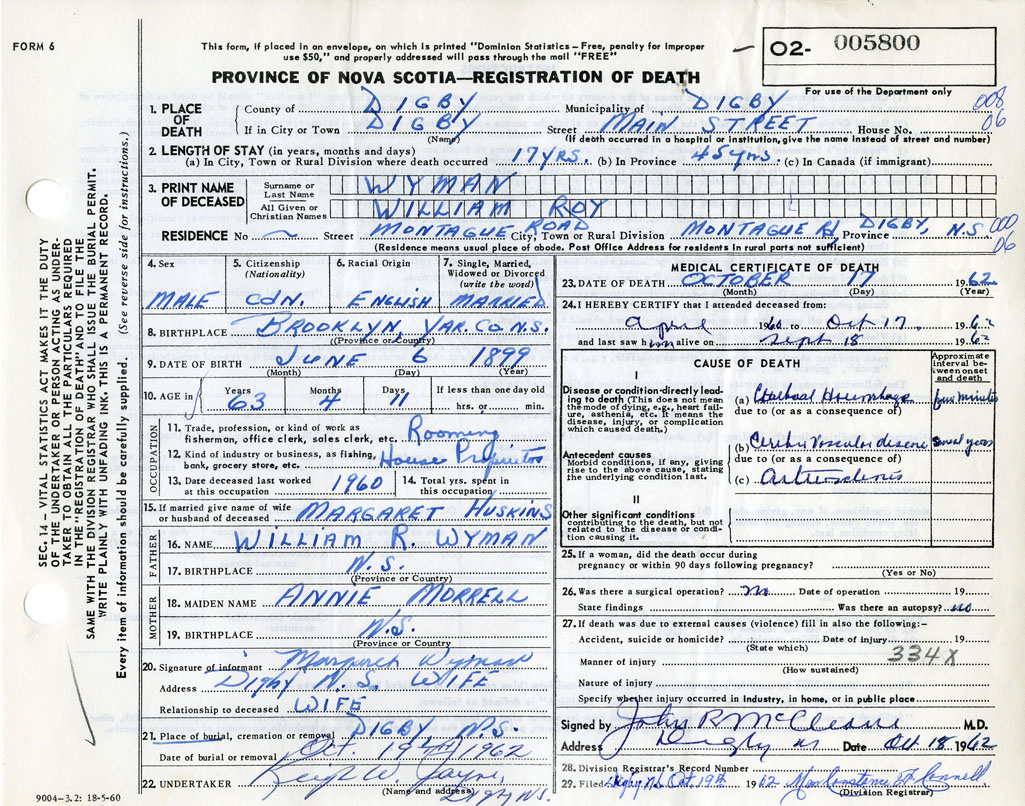 FORM 6
This form, if placed in an envelope, on which is printed "Dominion Statistics – Free, penalty for improper
use $50," and properly addressed will pass through the mail "FREE"
PROVINCE OF NOVA SCOTIA—REGISTRATION OF DEATH
02- 005800
For use of the Department only
008
06
1. PLACE OF DEATH
County of DIGBY Municipality of DIGBY
If in City or Town DIGBY Street MAIN STREET House No.
(Name) (If death occurred in a hospital or institution, give the name instead of street and number)
2. LENGTH OF STAY (in years, months and days)
(a) In City, Town or Rural Division where death occurred 17 yrs. (b) In Province 45 yrs. (c) In Canada (if immigrant)
3. PRINT NAME OF DECEASED
Surname or Last Name WYMAN
All Given or Christian Names WILLIAM ROY
RESIDENCE No — Street MONTAGUE ROAD City, Town or Rural Division MONTAGUE Rd, DIGBY, Province N.S.
000
06
(Residence means usual place of abode. Post Office Address for residents in rural parts not sufficient)
4. Sex
MALE
5. Citizenship (Nationality)
CDN.
6. Racial Origin
ENGLISH
7. Single, Married, Widowed or Divorced (write the word)
MARRIED
8. BIRTHPLACE BROOKLYN, YAR. CO. N.S.
(Province or Country)
9. DATE OF BIRTH JUNE 6 1899
(Month) (Day) (Year)
10. AGE in
Years Months Days If less than one day old
63 4 11 hrs. or min.
OCCUPATION
11. Trade, profession, or kind of work as
fisherman, office clerk, sales clerk, etc. Rooming
12. Kind of industry or business, as fishing,
bank, grocery store, etc. House Proprietor
13. Date deceased last worked
at this occupation 1960
14. Total yrs. spent in
this occupation
15. If married give name of wife
or husband of deceased MARGARET HUSKINS
FATHER
16. NAME WILLIAM R. WYMAN
17. BIRTHPLACE N.S.
(Province or Country)
MOTHER
18. MAIDEN NAME ANNIE MORRELL
19. BIRTHPLACE N.S.
(Province or Country)
20. Signature of informant Margaret Wyman
Address Digby N.S. WIFE
Relationship to deceased WIFE
21. Place of burial, cremation or removal DIGBY, N.S.
Date of burial or removal Oct. 19th 1962
22. UNDERTAKER W. Jayne,
(Name and address) Digby N.S.
9004-3.2: 18-5-60
MEDICAL CERTIFICATE OF DEATH
23. DATE OF DEATH OCTOBER 17 1962
(Month) (Day) (Year)
24. I HEREBY CERTIFY that I attended deceased from:
April 1960 to Oct 17, 1962
and last saw him alive on Sept 18 1962
CAUSE OF DEATH
Approximate interval between onset and death
I
Disease or condition directly leading to death (This does not mean the mode of dying, e.g., heart failure, asthenia, etc. It means the disease, injury, or complication which caused death.)
(a) Cerebral Hemorrhage few minutes
due to (or as a consequence of)
Antecedent causes
Morbid conditions, if any, giving rise to the above cause, stating the underlying condition last.
(b) Cerebro Vascular disease Several years
due to (or as a consequence of)
(c) Arteriosclerosis
II
Other significant conditions
contributing to the death, but not related to the disease or condition causing it.
25. If a woman, did the death occur during
pregnancy or within 90 days following pregnancy?
(Yes or No)
26. Was there a surgical operation? no Date of operation 19
State findings Was there an autopsy? no
27. If death was due to external causes (violence) fill in also the following:-
Accident, suicide or homicide? Date of injury 19
(State which)
334X
Manner of injury
(How sustained)
Nature of injury
Specify whether injury occurred in industry, in home, or in public place
Signed by John R McCleave M.D.
Address Digby NS Date Oct 18 1962
28. Division Registrar's Record Number
29. Filed Digby N.S. Oct 19th 1962 Constance Connell
(Division Registrar)
SEC. 14 – VITAL STATISTICS ACT MAKES IT THE DUTY
OF THE UNDERTAKER OR PERSON ACTING AS UNDER-
TAKER TO OBTAIN ALL THE PARTICULARS REQUIRED
IN THE "REGISTRATION OF DEATH" AND TO FILE THE
SAME WITH THE DIVISION REGISTRAR WHO SHALL ISSUE THE BURIAL PERMIT.
WRITE PLAINLY WITH UNFADING INK. THIS IS A PERMANENT RECORD.
Every item of information should be carefully supplied. (See reverse side for instructions.)